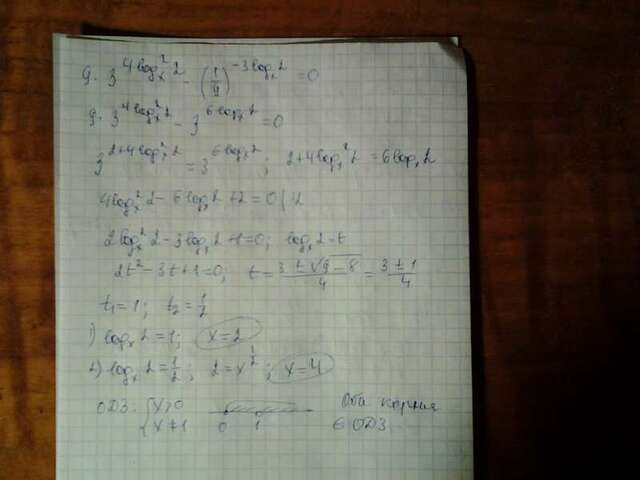 9·3^{4log_x^2 2} - (1/9)^{-3log_x 2} = 0
9·3^{4log_x^2 2} - 3^{6log_x 2} = 0
3^{2+4log_x^2 2} = 3^{6log_x 2}; 2+4log_x^2 2 = 6log_x 2
4log_x^2 2 - 6log_x 2 + 2 = 0 | :2
2log_x^2 2 - 3log_x 2 + 1 = 0; log_x 2 = t
2t^2 - 3t + 1 = 0; t = (3 ± √(9-8))/4 = (3 ± 1)/4
t_1 = 1; t_2 = 1/2
1) log_x 2 = 1; x = 2
2) log_x 2 = 1/2; 2 = x^{1/2}; x = 4
ОДЗ: { x > 0 Оба корня
x ≠ 1 0 1 ∈ ОДЗ